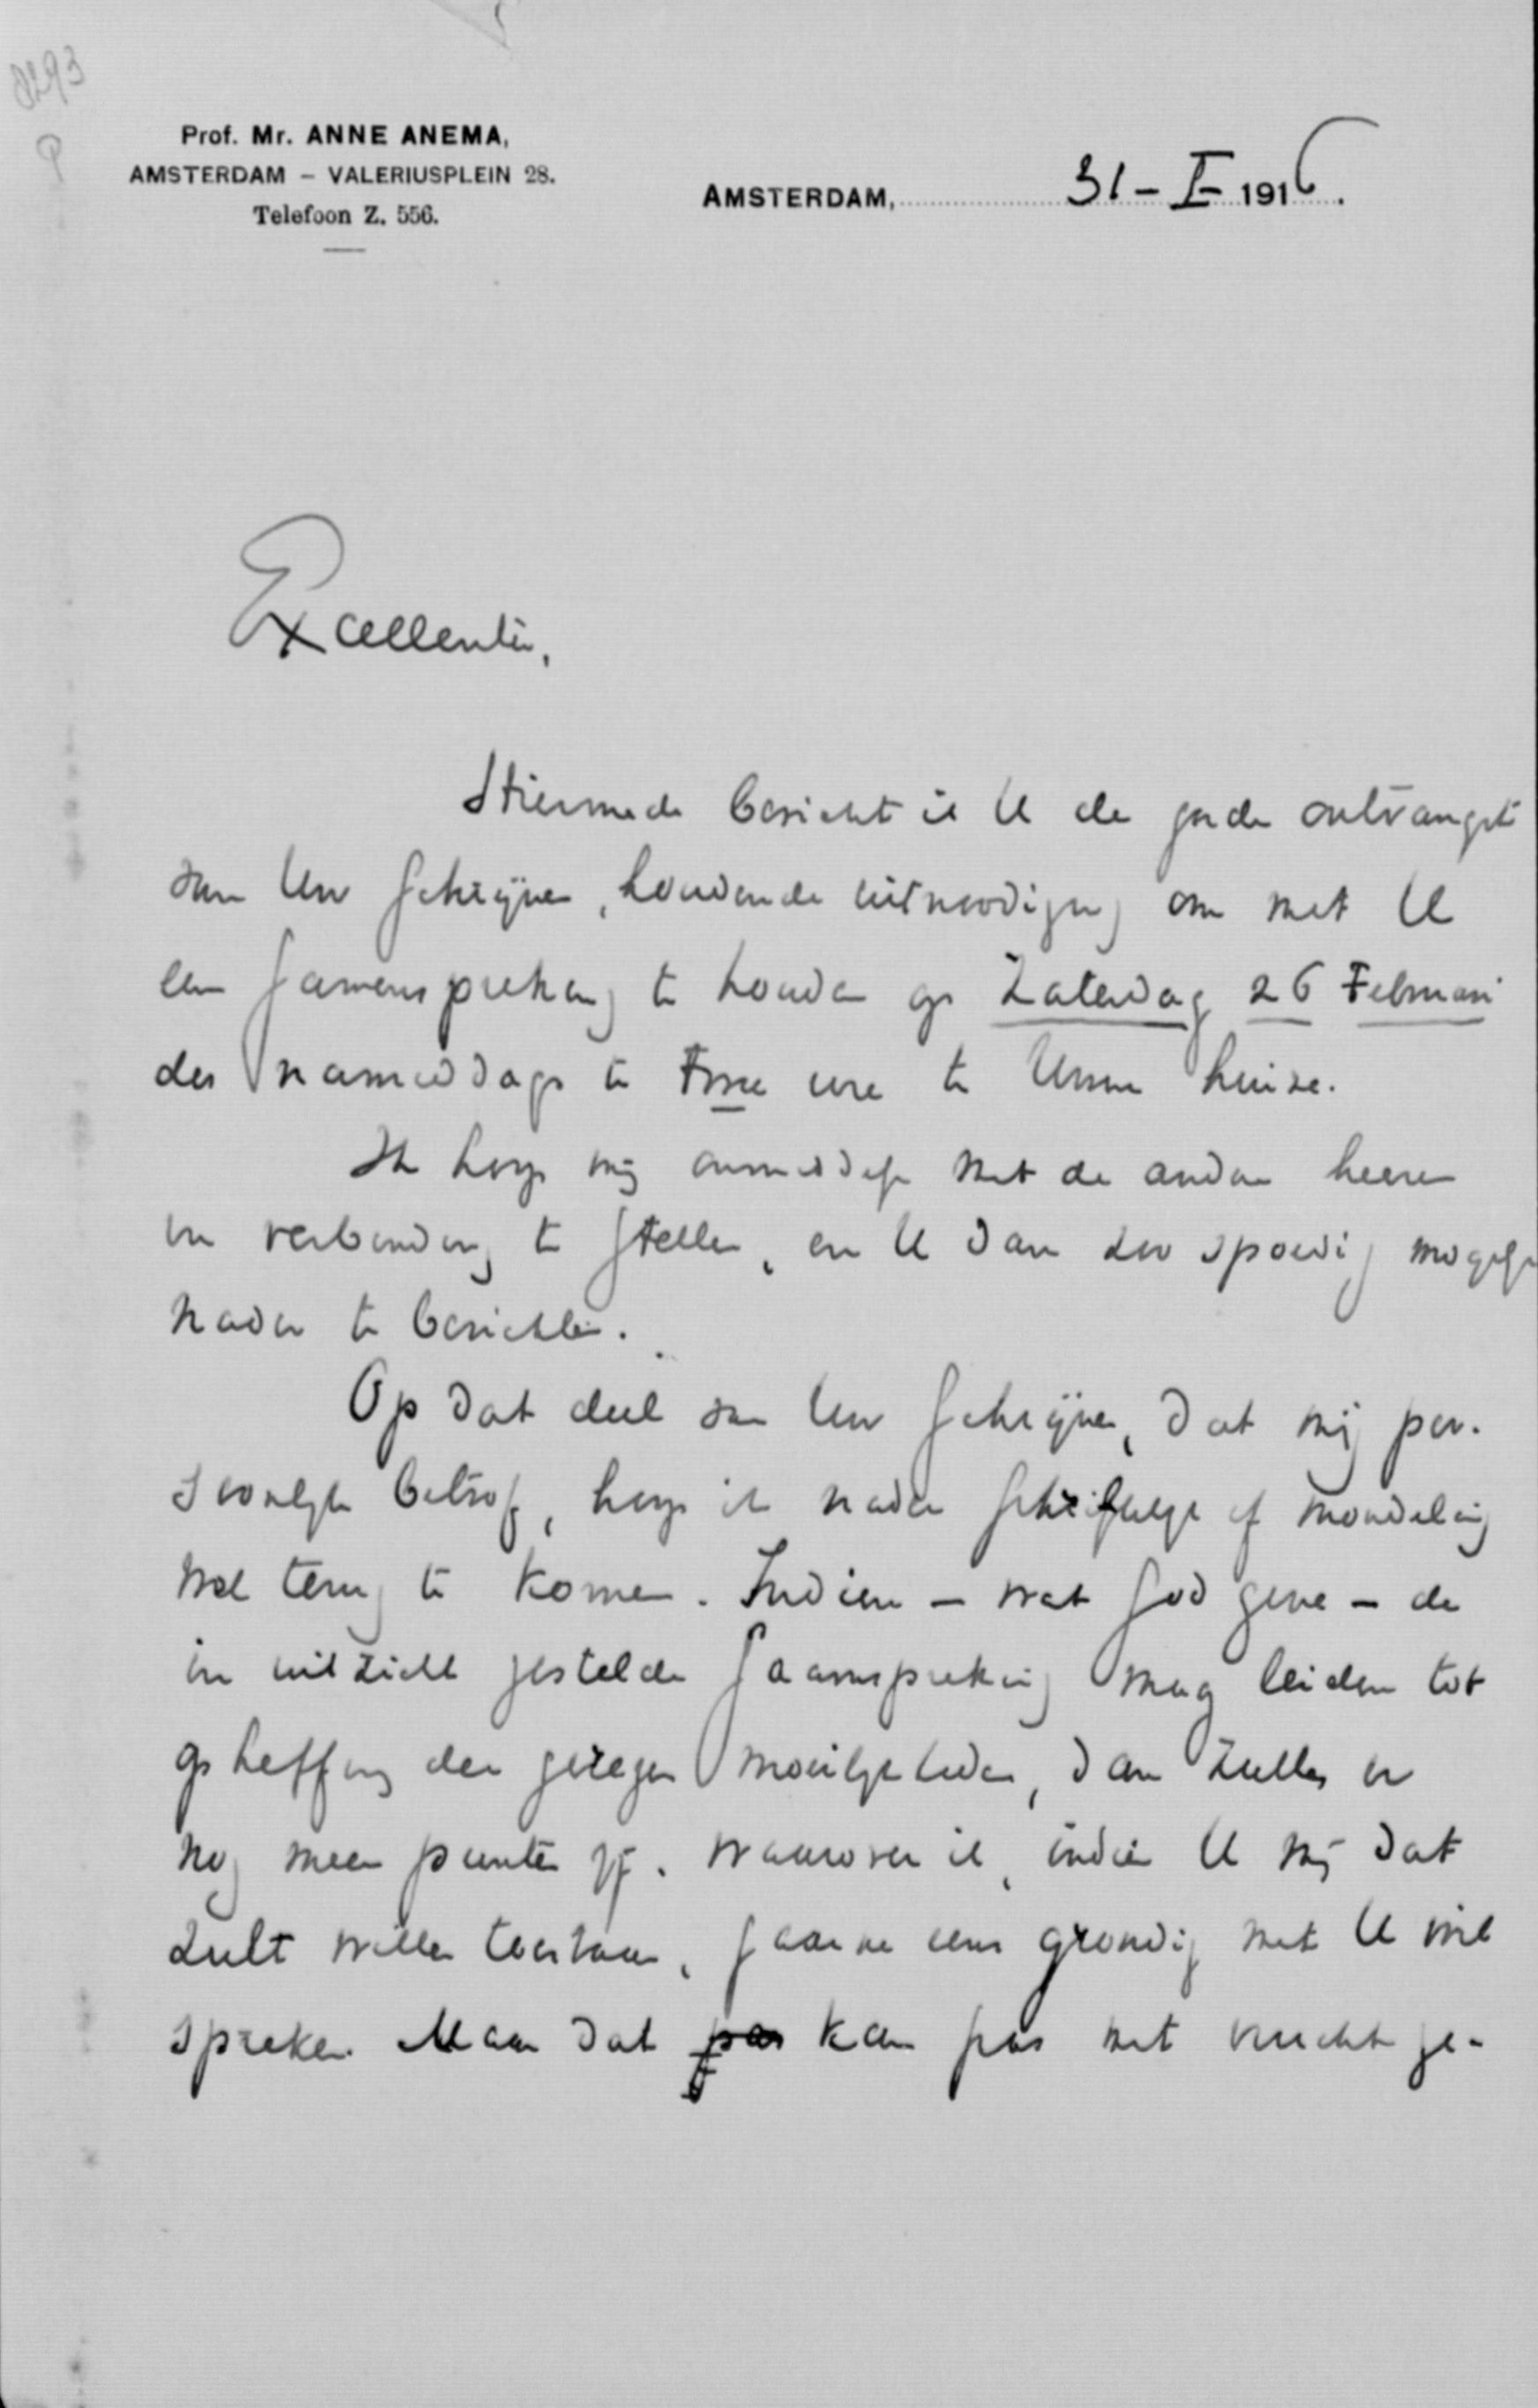 8293
Prof. Mr. ANNE ANEMA,
AMSTERDAM – VALERIUSPLEIN 28.
Telefoon Z. 556.
AMSTERDAM, 31 – I – 1916.
Excellentie,
Hiermede bericht ik U de goede ontvangst
van Uw schrijven, houdende uitnoodiging om met U
een samenspreking te houden op Zaterdag 26 Februari
des namiddags te twee ure te Uwen huize.
Ik hoop mij onmiddelijk met de andere heeren
in verbinding te stellen, en U dan zoo spoedig mogelijk
nader te berichten.
Op dat deel van Uw schrijven, dat mij per-
soonlijk betrof, hoop ik nader schriftelijk of mondeling
wel terug te komen. Indien – wat God geve – de
in uitzicht gestelde saamspreking mag leiden tot
opheffing der gerezen moeilijkheden, dan zullen er
nog meer punten zijn, waarover ik, indien U mij dat
zult willen toestaan, gaarne eens grondig met U wil
spreken. Maar dat pas kan pas met vrucht ge-